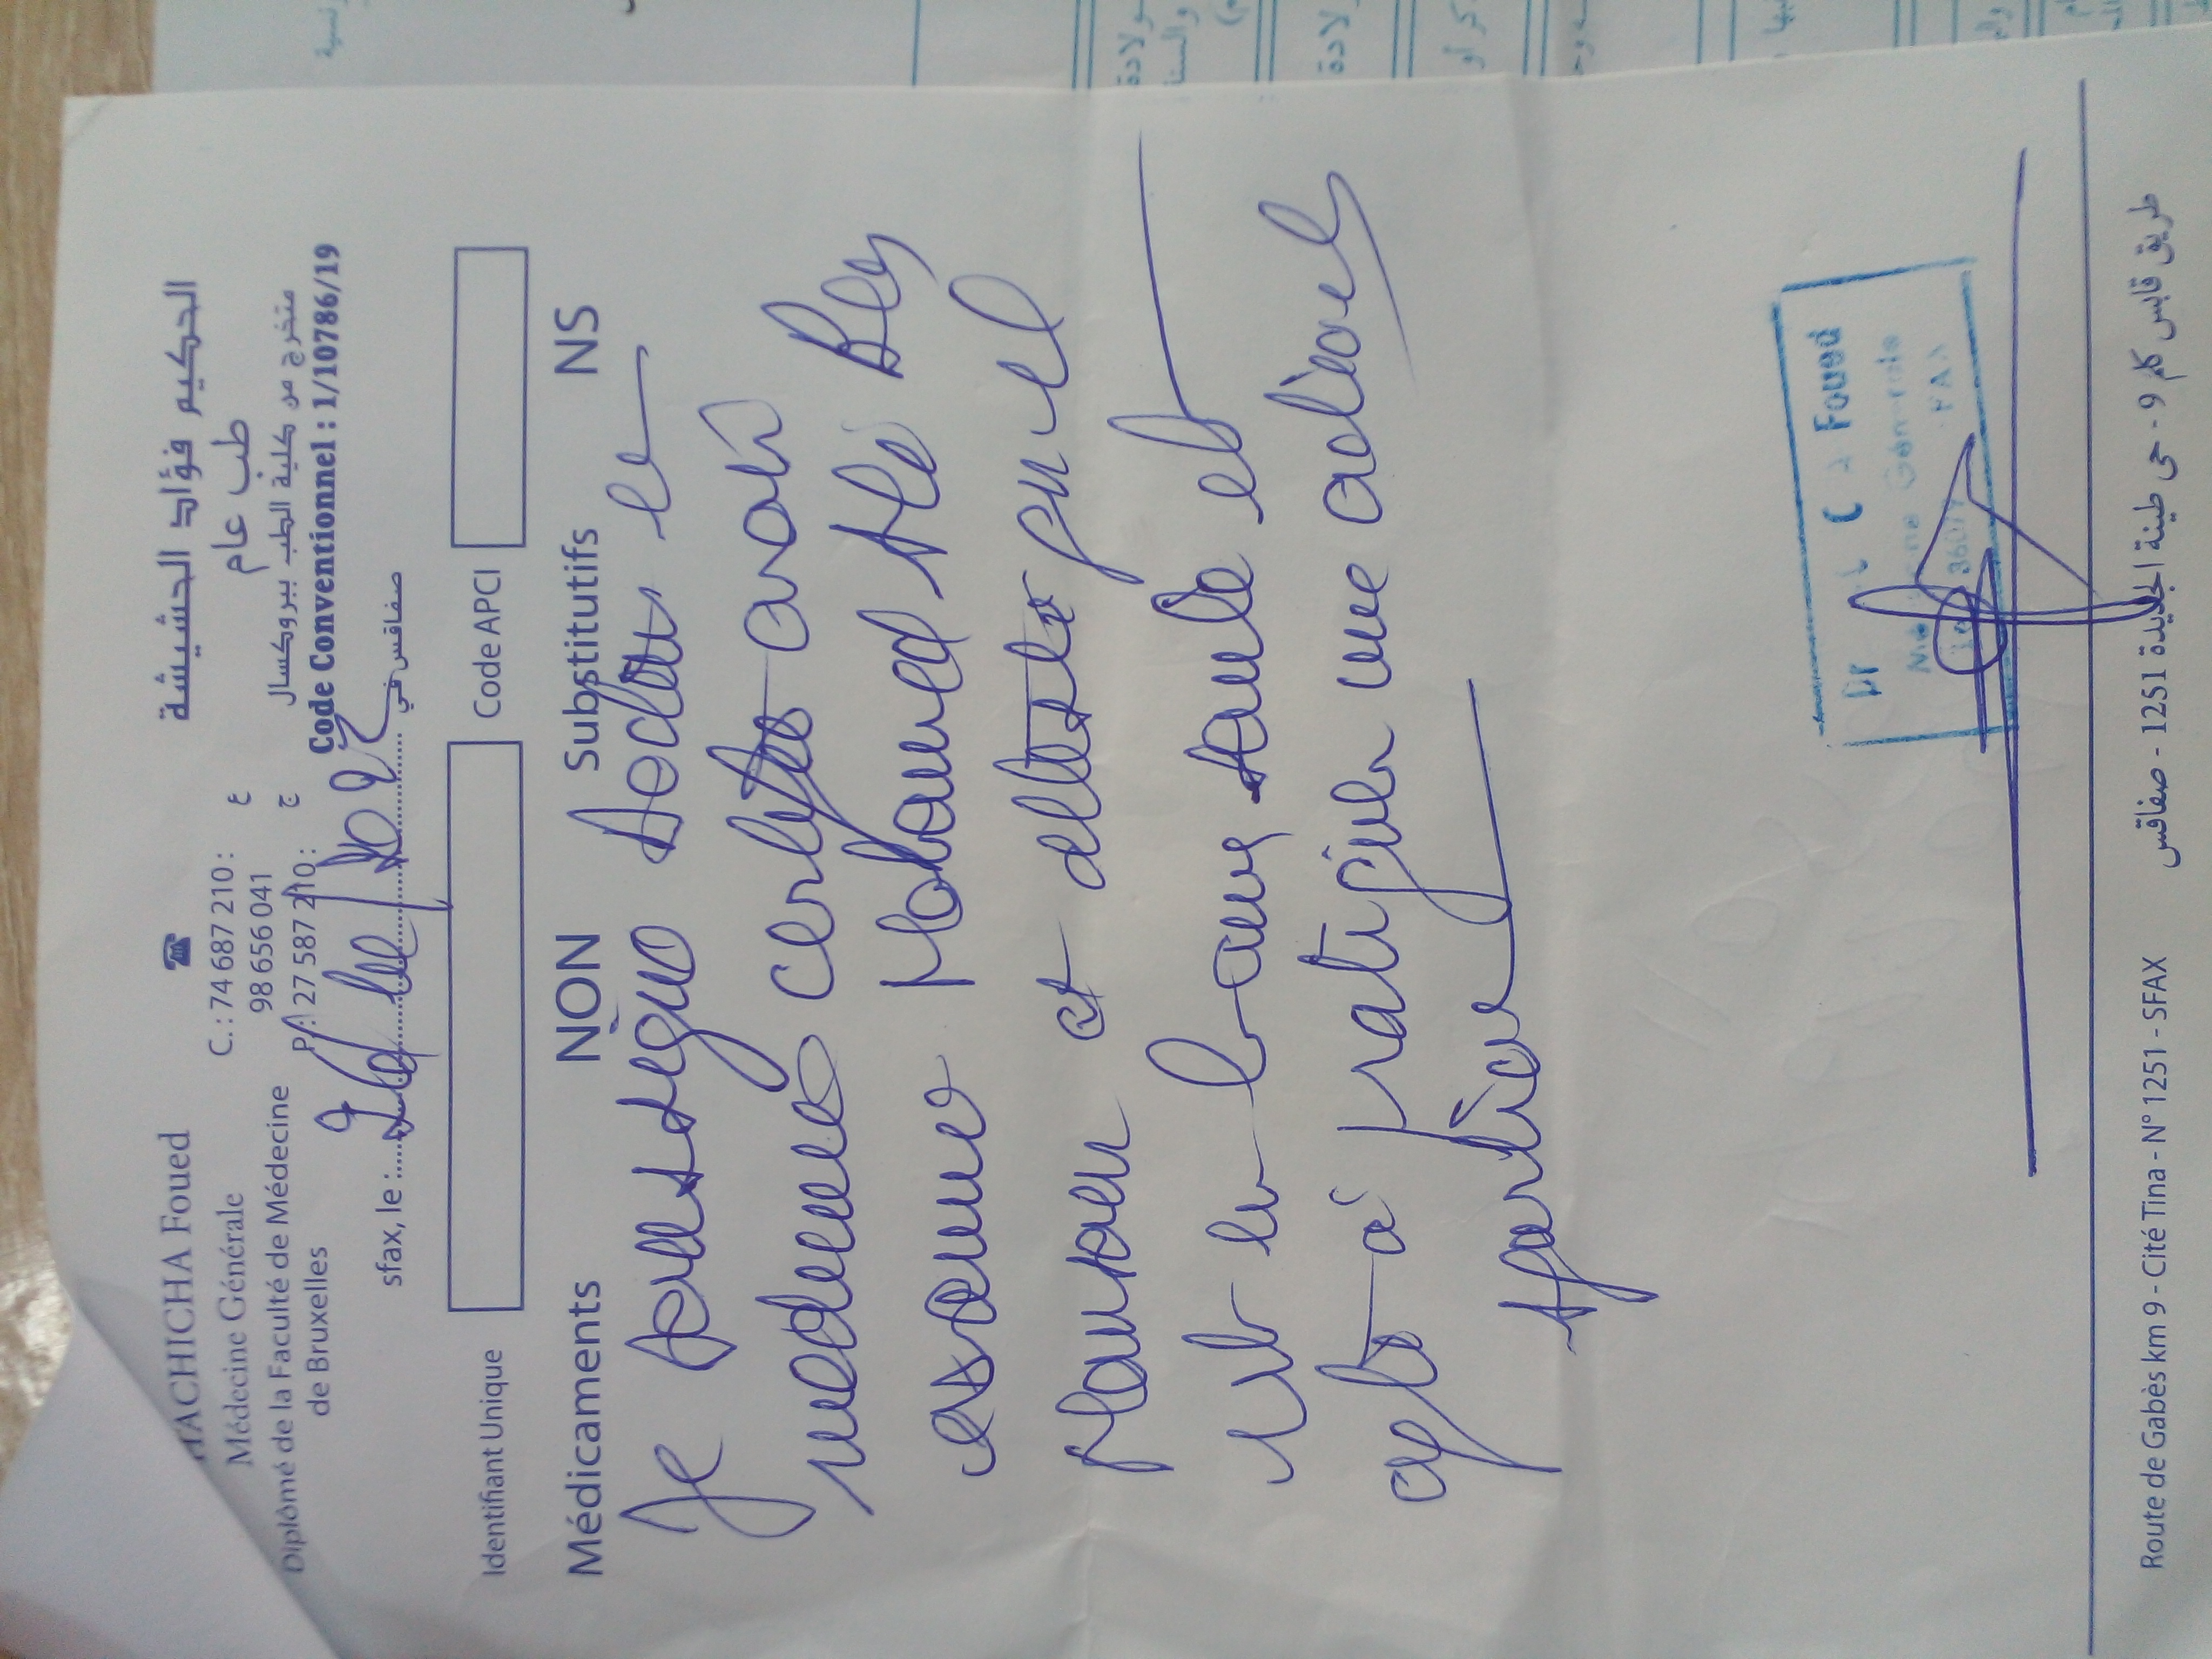 HACHICHA Foued
Médecine Générale
Diplômé de la Faculté de Médecine
de Bruxelles
☎
C. : 74 687 210 : ع
98 656 041
P. : 27 587 210 : ج
الحكيم فؤاد الحشيشة
طب عام
متخرج من كلية الطب ببروكسال
Code Conventionnel : 1/10786/19
sfax, le : صفاقس في
Identifiant Unique Code APCI
Médicaments NON Substitutifs NS
Je soussigné Docteur le
médecin certifie avoir
examiné Mohamed Ali Ben
et atteste qu'il
est en bonne santé et
apte à pratiquer une activité
sportive
Dr Foued
Générale
Route de Gabès km 9 - Cité Tina - N° 1251 - SFAX طريق قابس كلم 9 - حي طينة الجديدة 1251 - صفاقس